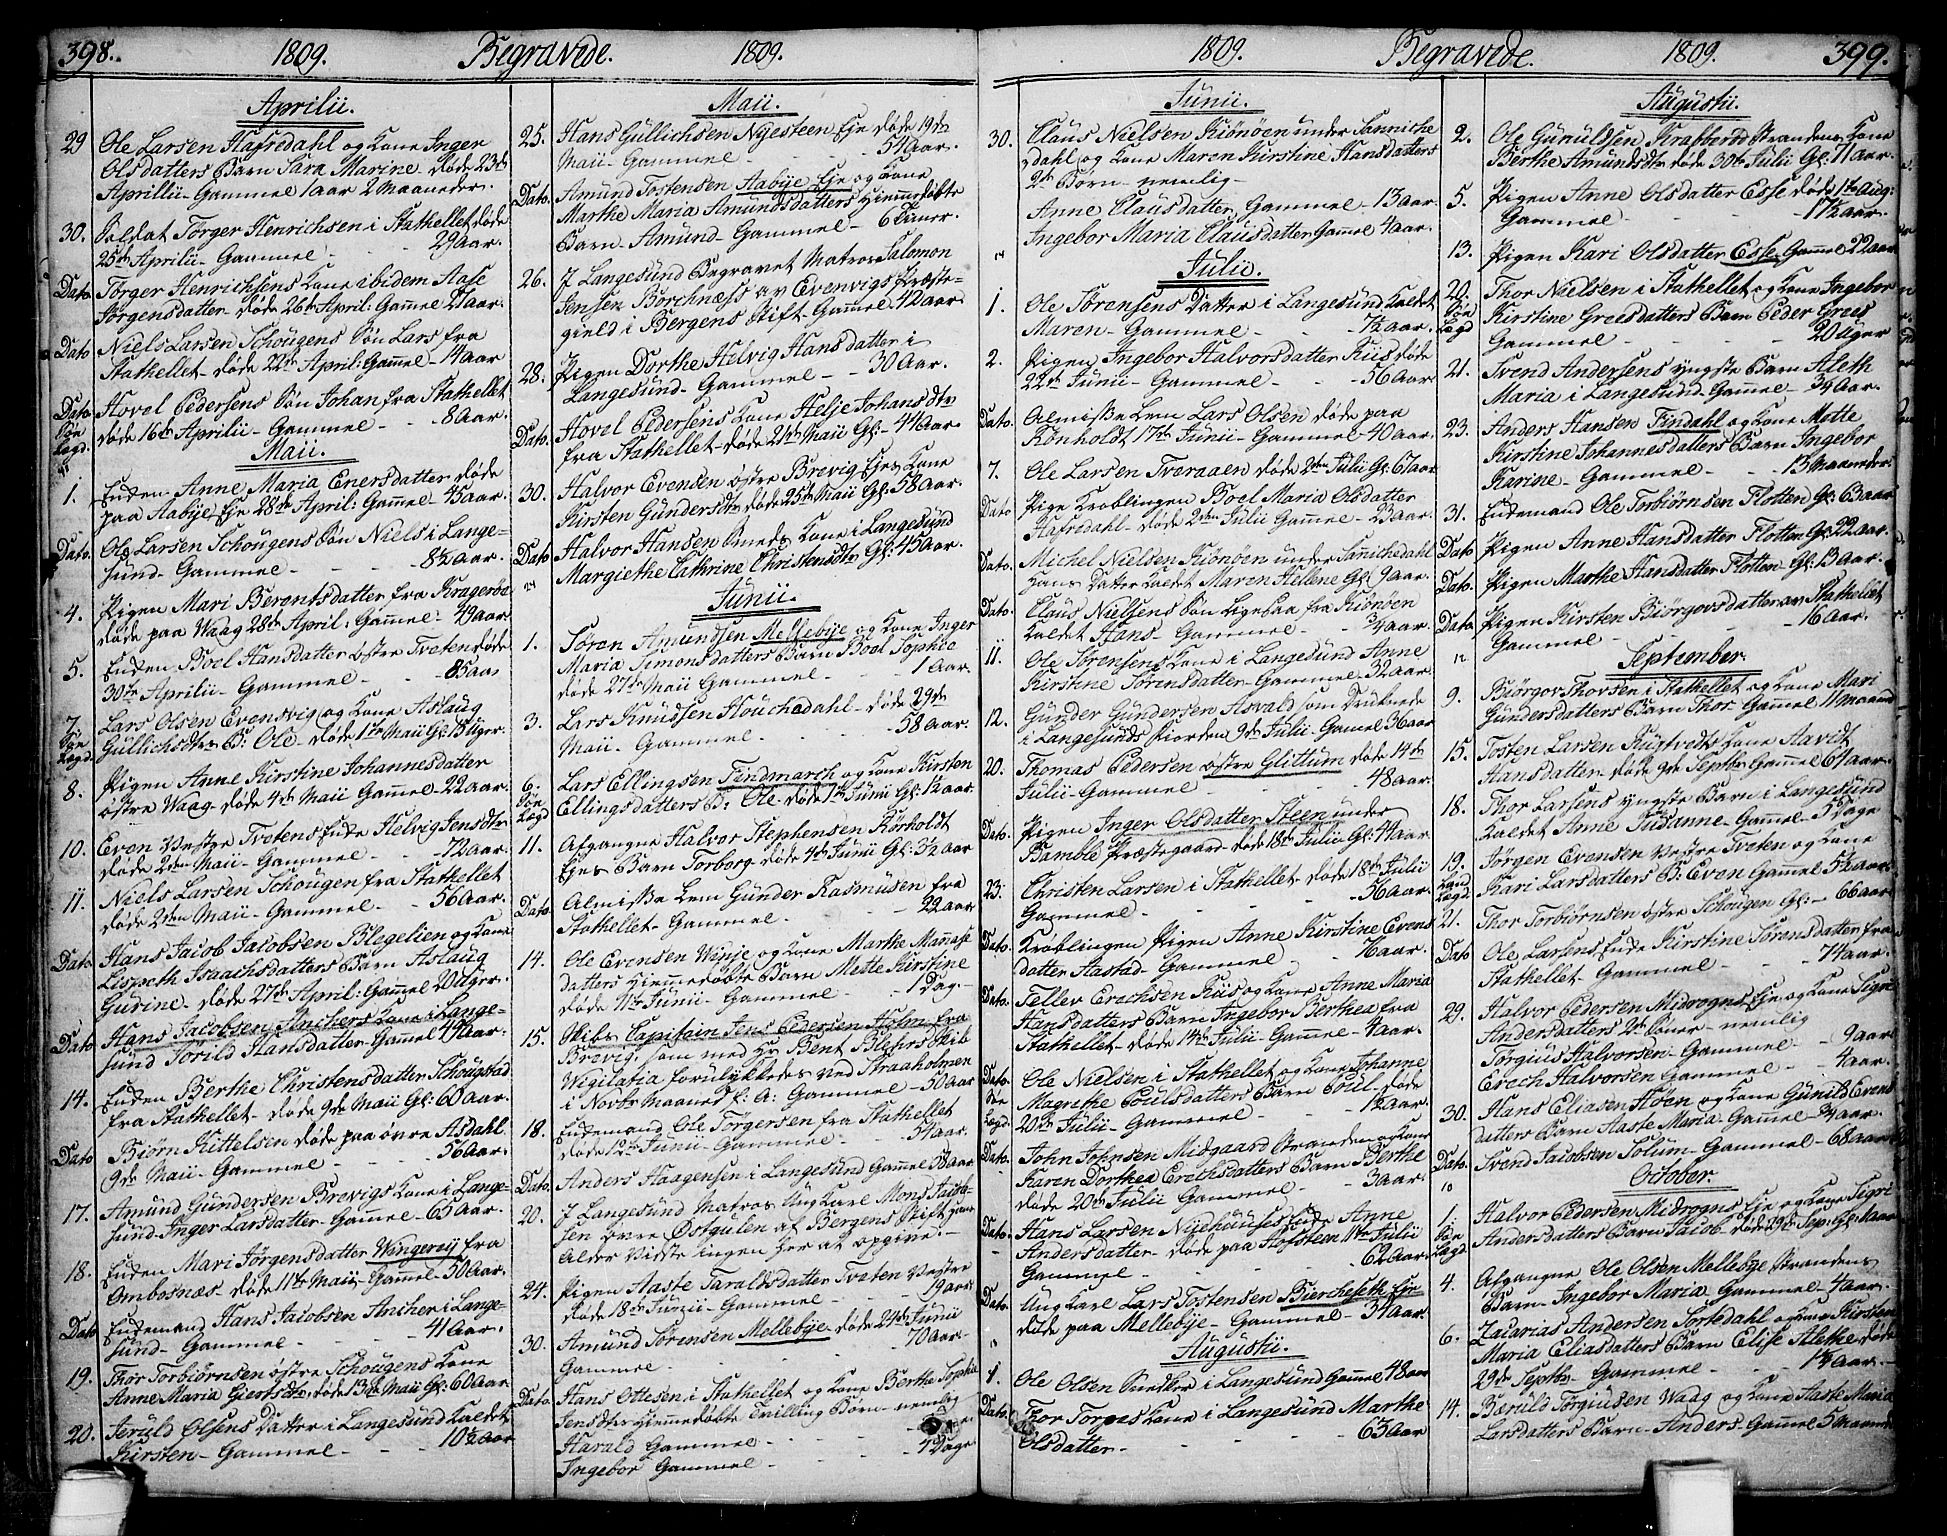 398. 1809. Begravede. 1809.
Aprilii.
29 Ole Larsen Hafredahl og Kone Inger
Olsdatters Barn Sara Marine døde 23de
Aprilii - Gammel 1 Aar 2 Maaneder.
30. Soldat Jørger Henrichsen i Stathellet døde
25de Aprilii - Gammel - 29 Aar.
Dato Jørger Henrichsens Kone ibidem Aase
Jørgensdatter - døde 26de April: Gamel 27 Aar.
Dato Niels Larsen Schougens Søn Lars fra
Stathellet - døde 22de April: Gamel - 14 Aar
Dato Hovel Pedersens Søn Johan fra Stathellet
døde 16de Aprilii - Gammel - 8 Aar.
Maii.
1. Enken Anne Maria Enersdatter døde
paa Aabye Eje 28de April: Gamel 45 Aar.
Dato. Ole Larsen Schougens Søn Niels i Lange-
sund - Gammel - 8½ Aar.
4. Pigen Mari Berentsdatter fra Kragerøe
døde paa Waag 28de April: Gamel - 49 Aar.
5. Enken Boel Hansdatter østre Tveten døde
30te Aprilii - Gammel - 85 Aar
7. Lars Olsen Evensvig og Kone Aslaug
Gullichsdtrs B: Ole - døde 1te Maii Gl: 15 Uger.
8. Pigen Anne Kirstine Johannesdatter
østre Waag - døde 4de Maii Gamel - 22 Aar.
10. Even Vestre Tvetens Enke Helvig Jensdtr
døde 2den Maii - Gammel - 72 Aar.
11. Niels Larsen Schougen fra Stathellet
døde 2den Maii - Gammel - 56 Aar.
Dato. Hans Jacob Jacobsen Blegelien og Kone
Lispeth Isaachsdatters Barn Aslaug
Gurine - døde 27de April: Gamel 20 Uger.
Dato Hans Jacobsen Anchers Kone i Lange-
sund Torild Hansdatter - Gamel 49 Aar.
14. Enken Berthe Christensdatter Schougstad
fra Stathellet - døde 9de Maii Gl: 60 Aar.
Dato Biørn Kittelsen døde paa øvre Asdahl
9de Maii - Gammel - 56 Aar.
17. Amund Gundersen Brevigs Kone i Lange-
sund - Inger Larsdatter - Gamel - 65 Aar.
18. Enken Mari Jørgensdatter Wingereij fra
Ombosnæs - døde 11te Maii - Gamel - 50 Aar.
Dato Enkemand Hans Jacobsen Ancher i Lange-
sund - Gammel - 41 Aar.
19. Thor Torbiørnsen østre Schougens Kone
Anne Maria Giertsdtr døde 13de Maii Gl: 60 Aar
20. Jeruld Olsens Datter i Langesund Kaldet
Kirsten - Gammel - 10½ Aar
Maii.
25. Hans Gullichsen Nyesteen Eje døde 19de
Maii - Gammel - 51 Aar.
Dato. Amund Tostensen Aabye Eje og Kone
Marthe Maria Amundsdatters Hiemmedøbte
Barn - Amund - Gammel - 6 Uger.
26. I Langesund Begravet Matros Salomon
Jensen Borchnæss av Evenvigs Præste-
gield i Bergens Stift - Gammel - 42 Aar.
28. Pigen Dorthe Helvig Hansdatter i
Langesund - Gammel - 30 Aar.
Dato. Hovel Pedersens Kone Helje Johansdtr
fra Stathellet - døde 21de Maii Gl: - 44 Aar.
30. Halvor Evensen østre Brevig Ejes Kone
Kirsten Gundersdtr døde 25de Maii Gl: 58 Aar.
Dato Halvor Hansen Smeds Kone i Langesund
Margiethe Cathrine Christensdtr Gl: 45 Aar.
Junii.
1. Søren Amundsen Mellebye og Kone Inger
Maria Simonsdatters Barn Boel Sophie
døde 27de Maii Gammel - 1 Aar.
3. Lars Knudsen Houchedahl - døde 29de
Maii - Gammel - 58 Aar.
6. Lars Ellingsen Findmarch og Kone Kirsten
Ellingsdatters B: Ole døde 1te Junii Gl: ½ Aar.
11. Afgangne Halvor Stephensen Rørholdt
Ejes Barn Torborg døde 4de Junii Gl: 3½ Aar
Dato. Almisse Lem Gunder Rasmusen fra
Stathellet - Gammel - 22 Aar
14. Ole Evensen Winje og Kone Marthe Mannase
datters Hiemmedøbte Barn Mette Kirstine
døde 11te Junii - Gammel - 1 Dag.
15. Skibs Capitain Jens Pedersen Holm fra
Brevig, som med Hr Bent Blehrs Skib
Wigilatia forulykkedes ved Straaholmen
i Novbr Maaned f: A: Gammel - 50 Aar
18. Enkemand Ole Jørgersen fra Stathellet
døde 12te Junii - Gammel - 51 Aar.
Dato. Anders Haagensen i Langesund Gamel 58 Aar
20. I Langesund Matros Ung Karl Mons Jacob-
sen øvre Østgulen af Bergens Stift hans
Alder Vidste ingen her at opgive. -
24. Pigen Aaste Taraldsdatter Tveten Vestre
døde 18de Junii - Gammel - 19 Aar.
30. Amund Sørensen Mellebye - døde 24de Junii
Gammel - 70 Aar.
Dato. Hans Ottesen i Stathellet og Kone Berthe Sophie
Jensdtrs Hiemmedøbte Tvilling Børn - nemlig
Harald Gammel -
Ingebor Gammel - 4 Dage
1809. Begravede. 1809. 399.
Junii.
30. Claus Nielsen Kiønøen under Sanniche
dahl og Kone Maren Kirstine Hansdatters
2de Børn - nemlig -
Anne Clausdatter Gammel - 13 Aar
Ingebor Maria Clausdatter Gamel 4 Aar.
Julii.
1. Ole Sørensens Datter i Langesund Kaldet
Maren - Gammel - 7½ Aar.
2. Pigen Ingebor Halvorsdatter Riis døde
22de Junii - Gammel - 56 Aar.
Dato. Almisse Lem Lars Olsen døde paa
Rønholdt 17de Junii - Gammel - 40 Aar.
7. Ole Larsen Tveraaen døde 2den Julii Gl: 67 Aar
Dato Pige Krøblingen Boel Maria Olsdatter
Hafredahl døde 2den Julii Gamel - 23 Aar.
Dato. Michel Nielsen Kiønøen under Sanichedahl
hans Datter Kaldet Maren Hellene Gl: 9 Aar.
Dato. Claus Nielsens Søn Ligesaa fra Kiønøen
Kaldet Hans - Gammel - ¾ Aar.
11. Ole Sørensens Kone i Langesund Anne
Kirstine Sørensdatter - Gammel - 32 Aar.
12. Gunder Gundersen Asvald som Druknede
i Langesunds Fiorden 9de Julii - Gamel 36 Aar
20. Thomas Pedersen østre Glittum døde 14de
Julii - Gammel - 48 Aar.
Dato. Pigen Inger Olsdatter Steen under
Bamble Præstegaard - døde 18de Julii Gl: 41 Aar.
23. Christen Larsen i Stathellet - døde 18de Julii
Gammel - 56 Aar.
Dato. Krøblingen Pigen Anne Kirstine Evens
datter Stastad - Gammel - 16 Aar.
Dato. Tellev Erechsen Riis og Kone Anne Maria
Hansdatters Barn Ingebor Berthea fra
Stathellet - døde 14de Julii - Gammel - 4 Aar.
Dato. Ole Nielsen i Stathellet og Kone Johanne
Magrethe Poulsdatters Barn Poul - døde
20de Julii - Gammel - 1½ Aar.
Dato. John Johnsen Midgaard Stranden og Kone
Karen Dorthea Erechsdatters Barn Berthe
døde 20de Julii Gammel - 3 Aar.
Dato. Hans Larsen Nyehuuses Enke Anne
Andersdatter - døde paa Hofsteen 11te Julii
Gammel - 62 Aar.
Dato. Ung Karl Lars Tostensen Biercheseth Eie
døde paa Mellebye - Gammel - 34 Aar.
Augustii.
1. Ole Olsen Snedker i Langesund Gamel 48 Aar
Dato. Thor Torpes Kone i Langesund Marthe
Olsdatter - 63 Aar
Augustii.
2. Ole Guruldsen Krabberød Strandens Kone
Berthe Amundsdtr døde 30te Julii Gl: 71 Aar.
5. Pigen Anne Olsdatter Esse døde 1te Aug:
Gammel - 17½ Aar.
13. Pigen Kari Olsdatter Esse Gamel 22 Aar
20. Thor Nielsen i Stathellet og Kone Ingebor
Kirstine Greesdatters Barn Peder Grees
Gammel - 20 Uger
21. Svend Andersens yngste Barn Aleth
Maria i Langesund - Gamel - ¾ Aar.
23. Anders Hansen Findahl og Kone Mette
Kirstine Johannesdatters Barn Ingebor
Karine - Gammel - 13 Maaneder.
31. Enkemand Ole Torbiørnsen Flotten Gl: 63 Aar
Dato Pigen Anne Hansdatter Flotten Gl: 22 Aar.
Dato. Pigen Marthe Hansdatter Flotten Gl: 13 Aar.
Dato. Pigen Kirsten Biørgovsdatter av Stathellet
Gammel - 16 Aar.
September.
9. Biørgov Thorsen i Stathellet og Kone Mari
Gundersdatters Barn Thor - Gamel 11 Maaned
15. Tosten Larsen Rugtvedts Kone Aavidt
Hansdatter - døde 9de Septbr Gamel 61 Aar.
18. Thor Larsens yngste Barn i Langesund
Kaldet Anne Susanne - Gamel - 5 Dage
19. Jørgen Evensen Vestre Tveten og Kone
Kari Larsdatters B: Even Gamel 5½ Aar.
21. Thor Torbiørnsen østre Schougen Gl: - 66 Aar
Dato Ole Larsens Enke Kirstine Sørensdatter fra
Stathellet - Gammel - 74 Aar.
29. Halvor Pedersen Midrogns Eje og Kone Sigri
Andersdatters 2de Sønner - nemlig
Torgius Halvorsen - Gammel - 9 Aar
Erech Halvorsen Gammel - 4 Aar.
30. Hans Eliasen Høen og Kone Gunild Evens
datters Barn Aaste Maria - Gamel - ¾ Aar.
Dato. Svend Jacobsen Solum - Gammel - 68 Aar
October.
1. Halvor Pedersen Midrogns Eje og Kone Sigri
Andersdatters Barn Jacob døde 19de Sep: Gl: 1 Aar
4. Afgangne Ole Olsen Mellebye Strandens
Barn - Ingebor Maria - Gammel 4 Aar.
6. Zacarias Andersen Sortedahl og Kone Kirsten
Maria Eliasdatters Barn Elise Alethe døde
29de Septbr Gammel - 1½ Aar. -
14. Bæruld Torgiusen Waag og Kone Aaste Maria
Larsdatters Barn - Anders - Gamel 5 Maaned